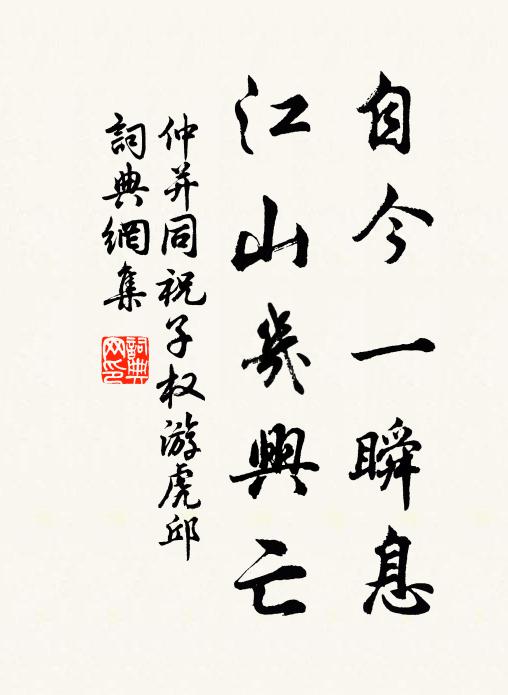 自今一瞬息
江山幾興亡
仲并同祝子权游虎邱
詞典網集
詞典網印